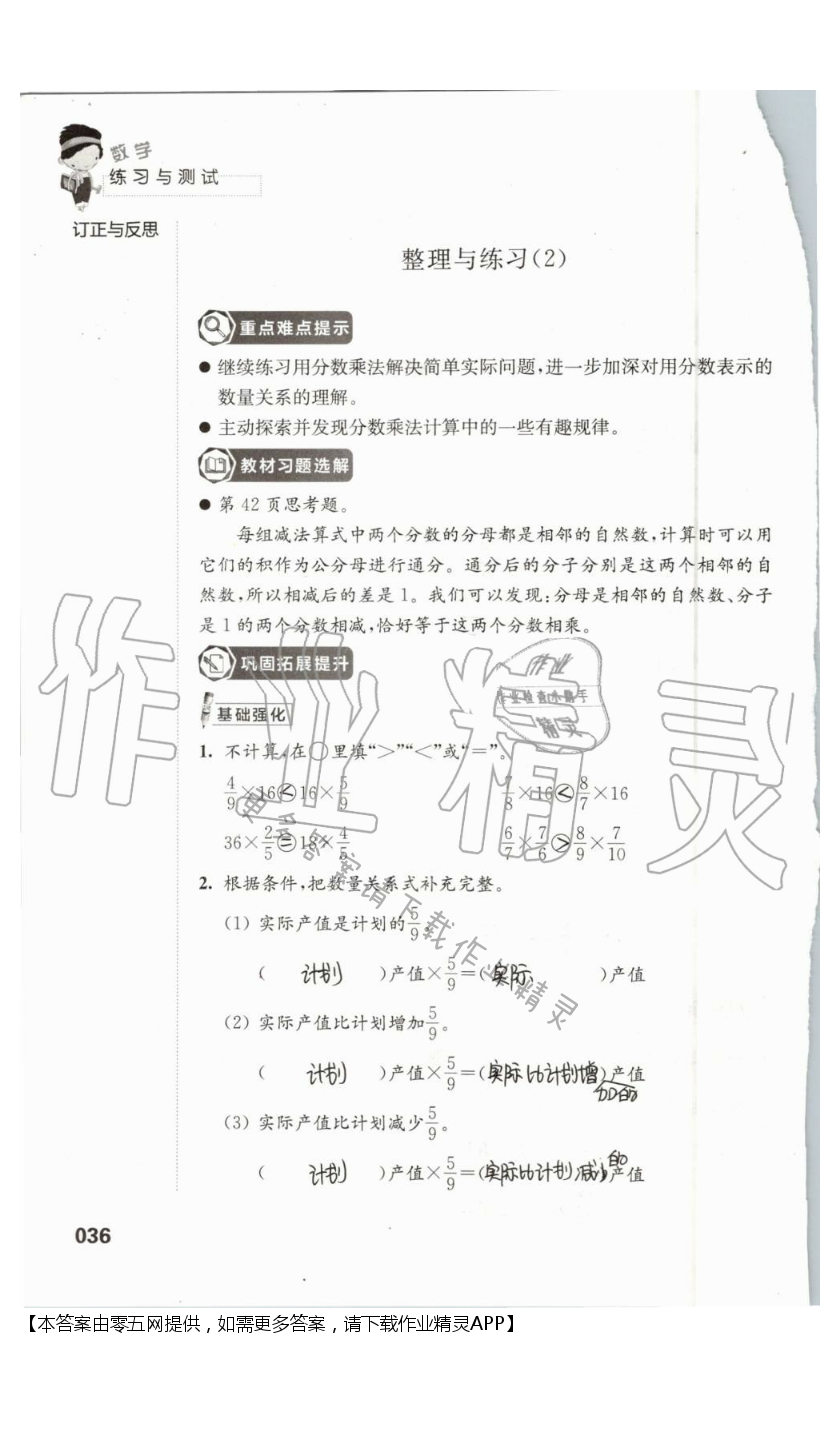 数学
练习与测试
订正与反思
整理与练习(2)
重点难点提示
● 继续练习用分数乘法解决简单实际问题,进一步加深对用分数表示的
数量关系的理解。
● 主动探索并发现分数乘法计算中的一些有趣规律。
教材习题选解
● 第 42 页思考题。
每组减法算式中两个分数的分母都是相邻的自然数,计算时可以用
它们的积作为公分母进行通分。通分后的分子分别是这两个相邻的自
然数,所以相减后的差是 1。我们可以发现:分母是相邻的自然数、分子
是 1 的两个分数相减,恰好等于这两个分数相乘。
巩固拓展提升
基础强化
1. 不计算,在○里填“>”“<”或“=”。
4/9×16<16×5/9 7/8×16<8/7×16
36×2/5=18×4/5 6/7×7/6>8/9×7/10
2. 根据条件,把数量关系式补充完整。
(1) 实际产值是计划的5/9。
( 计划 )产值×5/9=(实际 )产值
(2) 实际产值比计划增加5/9。
( 计划 )产值×5/9=(实际比计划增加的)产值
(3) 实际产值比计划减少5/9。
( 计划 )产值×5/9=(实际比计划减少的)产值
036
作业精灵
作业
作业检查小帮手
精灵
更多答案请下载作业精灵
【本答案由零五网提供，如需更多答案，请下载作业精灵APP】